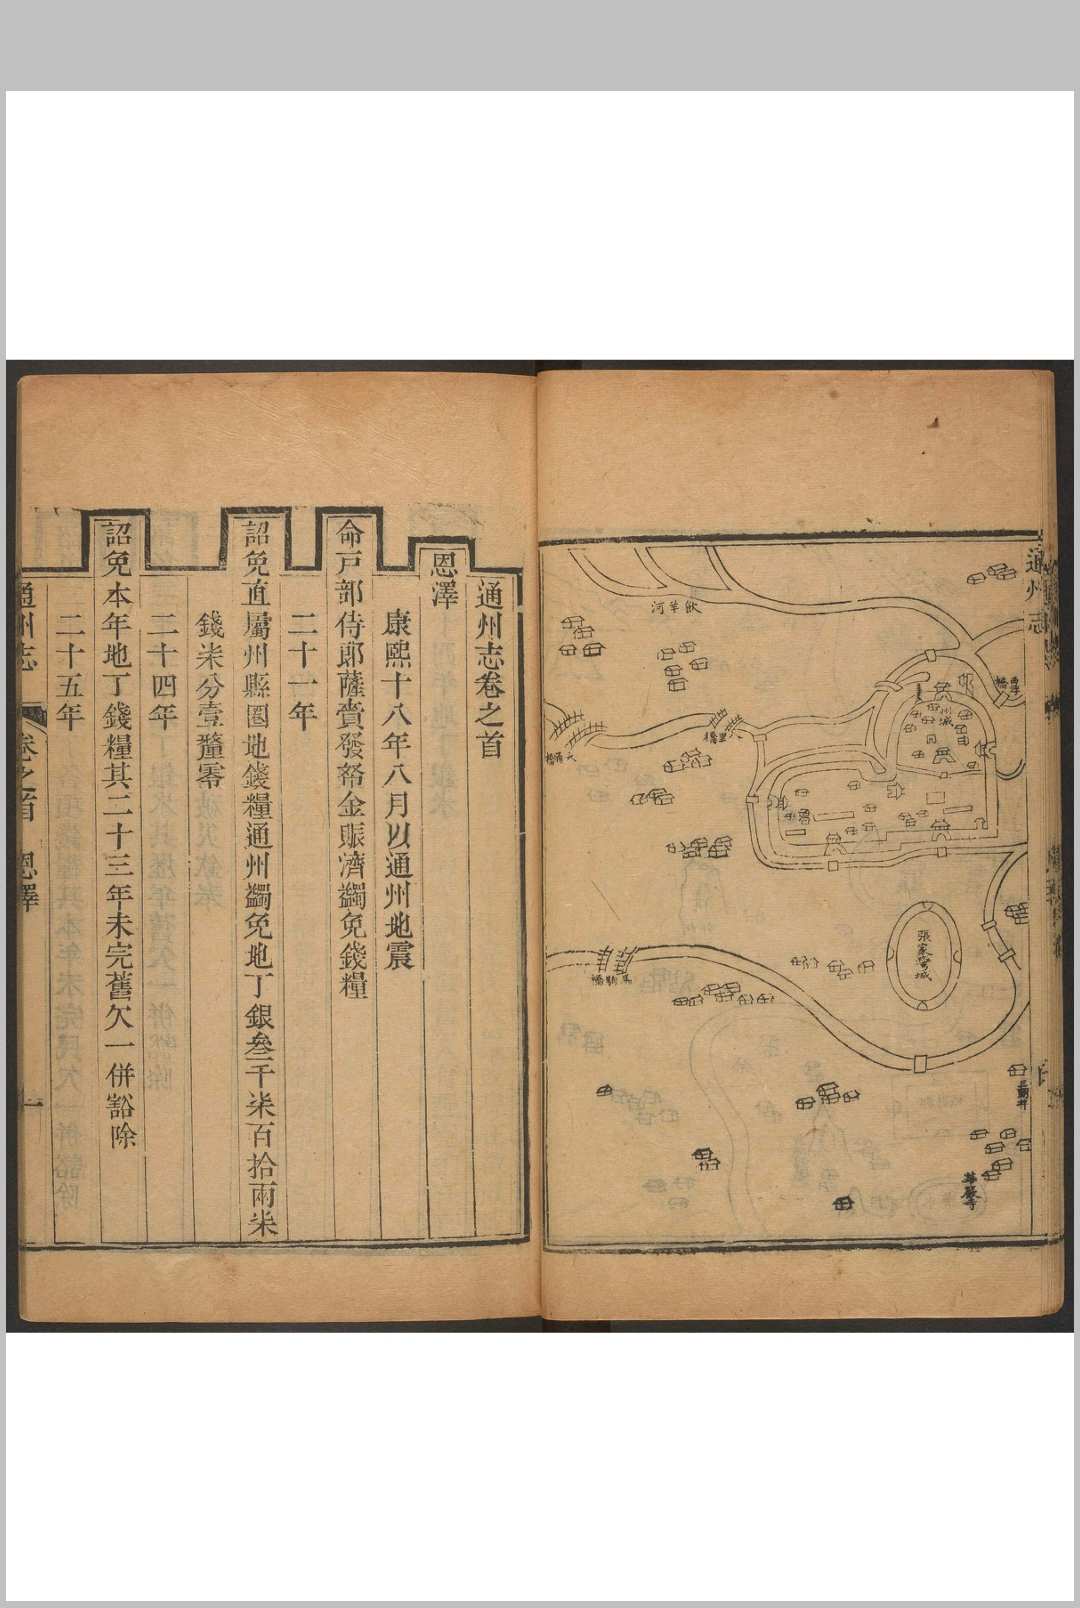 通州志
歃草河
八里橋
大通橋
州城
張家灣城
馬駒橋
華嚴寺
通州志卷之首
恩澤
康熙十八年八月以通州地震
命戸部侍郎薩賫發帑金賑濟蠲免錢糧
二十一年
詔免直屬州縣圈地錢糧通州蠲免地丁銀叁千柒百拾兩柒
錢柒分壹釐零
二十四年
詔免本年地丁錢糧其二十三年未完舊欠一併豁除
二十五年
通州志 卷之首 恩澤 一